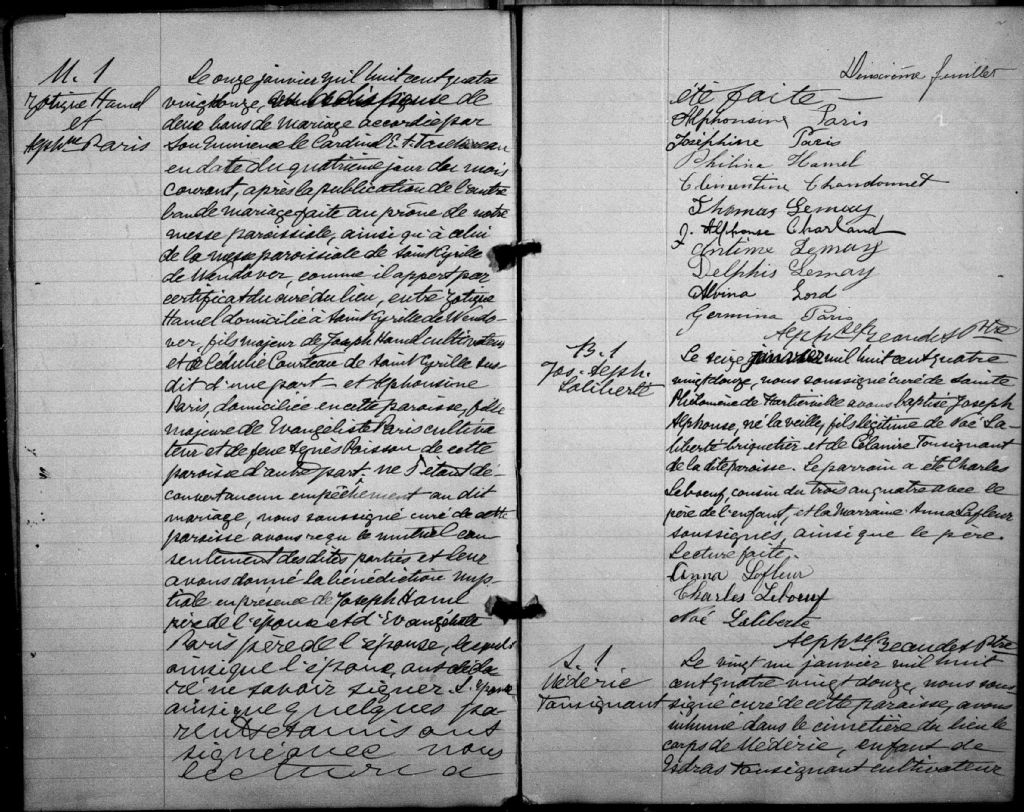 M. 1
Zotique Hamel
et
Alphne Paris
Le onze janvier mil huit cent quatre
vingt douze, vu la dispense de
deux bans de mariage accordée par
Son Eminence le Cardinal E. A. Taschereau
en date du quatrième jour du mois
courant, après la publication de l'autre
ban de mariage faite au prône de notre
messe paroissiale, ainsi qu'à celui
de la messe paroissiale de Saint Cyrille
de Wendover, comme il appert par
certificat du curé du lieu, entre Zotique
Hamel domicilié à Saint Cyrille de Wendo-
ver, fils majeur de Joseph Hamel cultivateur
et de Courteau de Saint Cyrille sus
dit d'une part - et Alphonsine
Paris, domiciliée en cette paroisse, fille
majeure de Evangeliste Paris cultiva-
teur et de feue Agnès Poisson de cette
paroisse d'autre part - ne s'étant dé-
couvert aucun empêchement au dit
mariage, nous soussigné curé de cette
paroisse avons reçu le mutuel con-
sentement des dites parties et leur
avons donné la bénédiction nup-
tiale en présence de Joseph Hamel
père de l'époux et d'Evangeliste
Paris père de l'épouse, lesquels
ainsi que l'époux, ont décla-
ré ne savoir signer. L'épouse
ainsi que quelques pa-
rents et amis ont
signé avec nous
lecture a
Deuxième feuillet
été faite -
Alphonsine Paris
Joséphine Paris
Philina Hamel
Clémentine Chandonnet
Thomas Lemay
J. Alphonse Charland
Antime Lemay
Delphis Lemay
Alvina Lord
Germina Paris
Beaudet Ptre
B. 1
Jos. Alph.
Laliberté
Le seize janvier mil huit cent quatre
vingt douze, nous soussigné curé de Sainte
Philomène de Fortierville avons baptisé Joseph
Alphonse, né la veille, fils légitime de Noé La-
liberté briquetier et de Tousignant
de la dite paroisse. Le parrain a été Charles
Leboeuf, cousin du trois au quatre avec le
père de l'enfant, et la marraine Anna Lafleur
soussignés, ainsi que le père.
Lecture faite.
Anna Lafleur
Charles Leboeuf
Noé Laliberté
Beaudet Ptre
S. 1.
Médérie
Tousignant
Le vingt un janvier mil huit
cent quatre vingt douze, nous sous
signé curé de cette paroisse, avons
inhumé dans le cimetière du lieu le
corps de Médérie, enfant de
Esdras Tousignant cultivateur